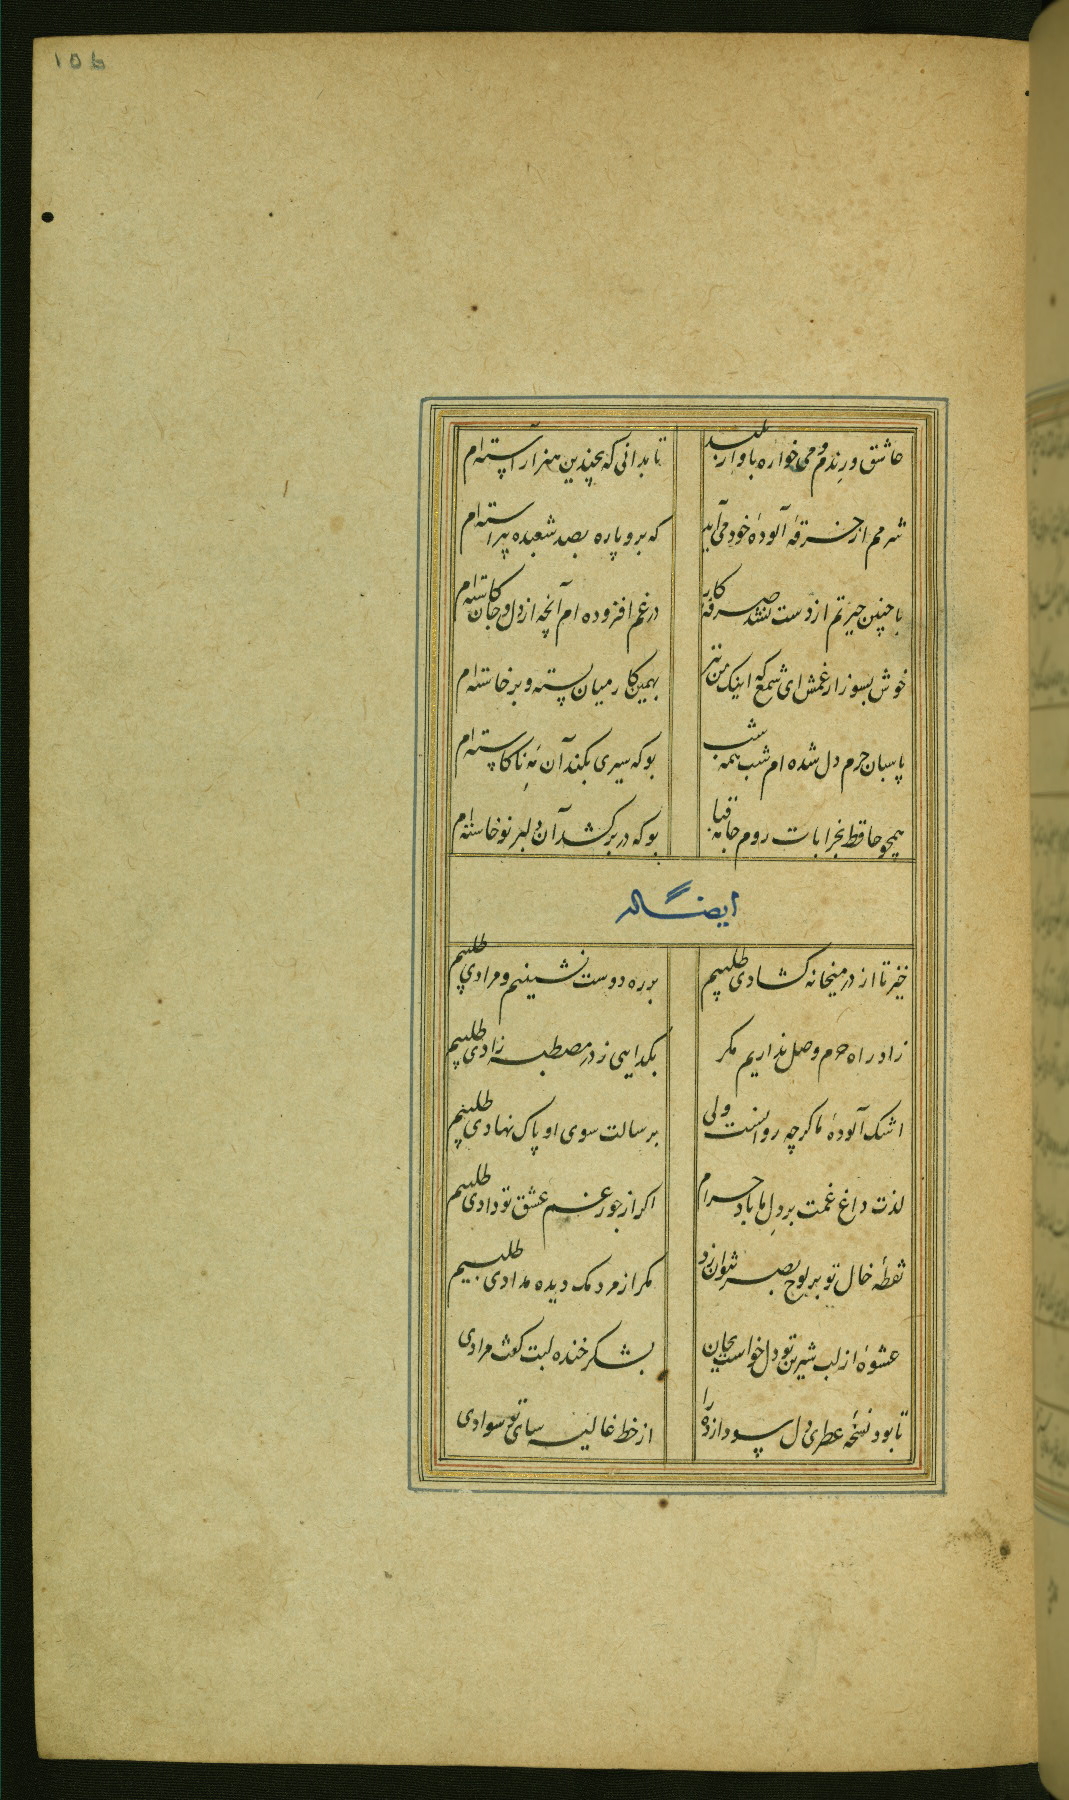 ۱۵۶
عاشق و رندم و می خواره باواز بلند
تا بدانی که بچندین هنر آراسته ام
شرمم از خرقهٔ آلودهٔ خود می آید
که برو پاره بصد شعبده پیراسته ام
با چنین حیرتم از دست بشد صرفهٔ کار
در غم افزوده ام آنچه از دل و جان کاسته ام
خوش بسوز از غمش ای شمع که اینک من نیز
بهمین کار میان بسته و برخاسته ام
پاسبان حرم دل شده ام شب همه شب
بو که سیری بکند آن مه ناکاسته ام
همچو حافظ بخرابات روم جامه قبا
بو که در بر کشد آن دلبر نوخاسته ام
ایضا له
خیز تا از در میخانه کشادی طلبیم
بر ره دوست نشینیم و مرادی طلبیم
زاد راه حرم وصل نداریم مکر
بکدایی ز در مصطبه زادی طلبیم
اشک آلودهٔ ما کرچه روانست ولی
برسالت سوی او پاک نهادی طلبیم
لذت داغ غمت بر دل ما باد حرام
اکر از جور غم عشق تو دادی طلبیم
نقطهٔ خال تو بر لوح بصر نتوان زد
مکر از مردمک دیده مدادی طلبیم
عشوهٔ از لب شیرین تو دل خواست بجان
بشکر خنده لبت کفت مرادی
تا بود نسخهٔ عطری دل سودازده را
از خط غالیه سای تو سوادی